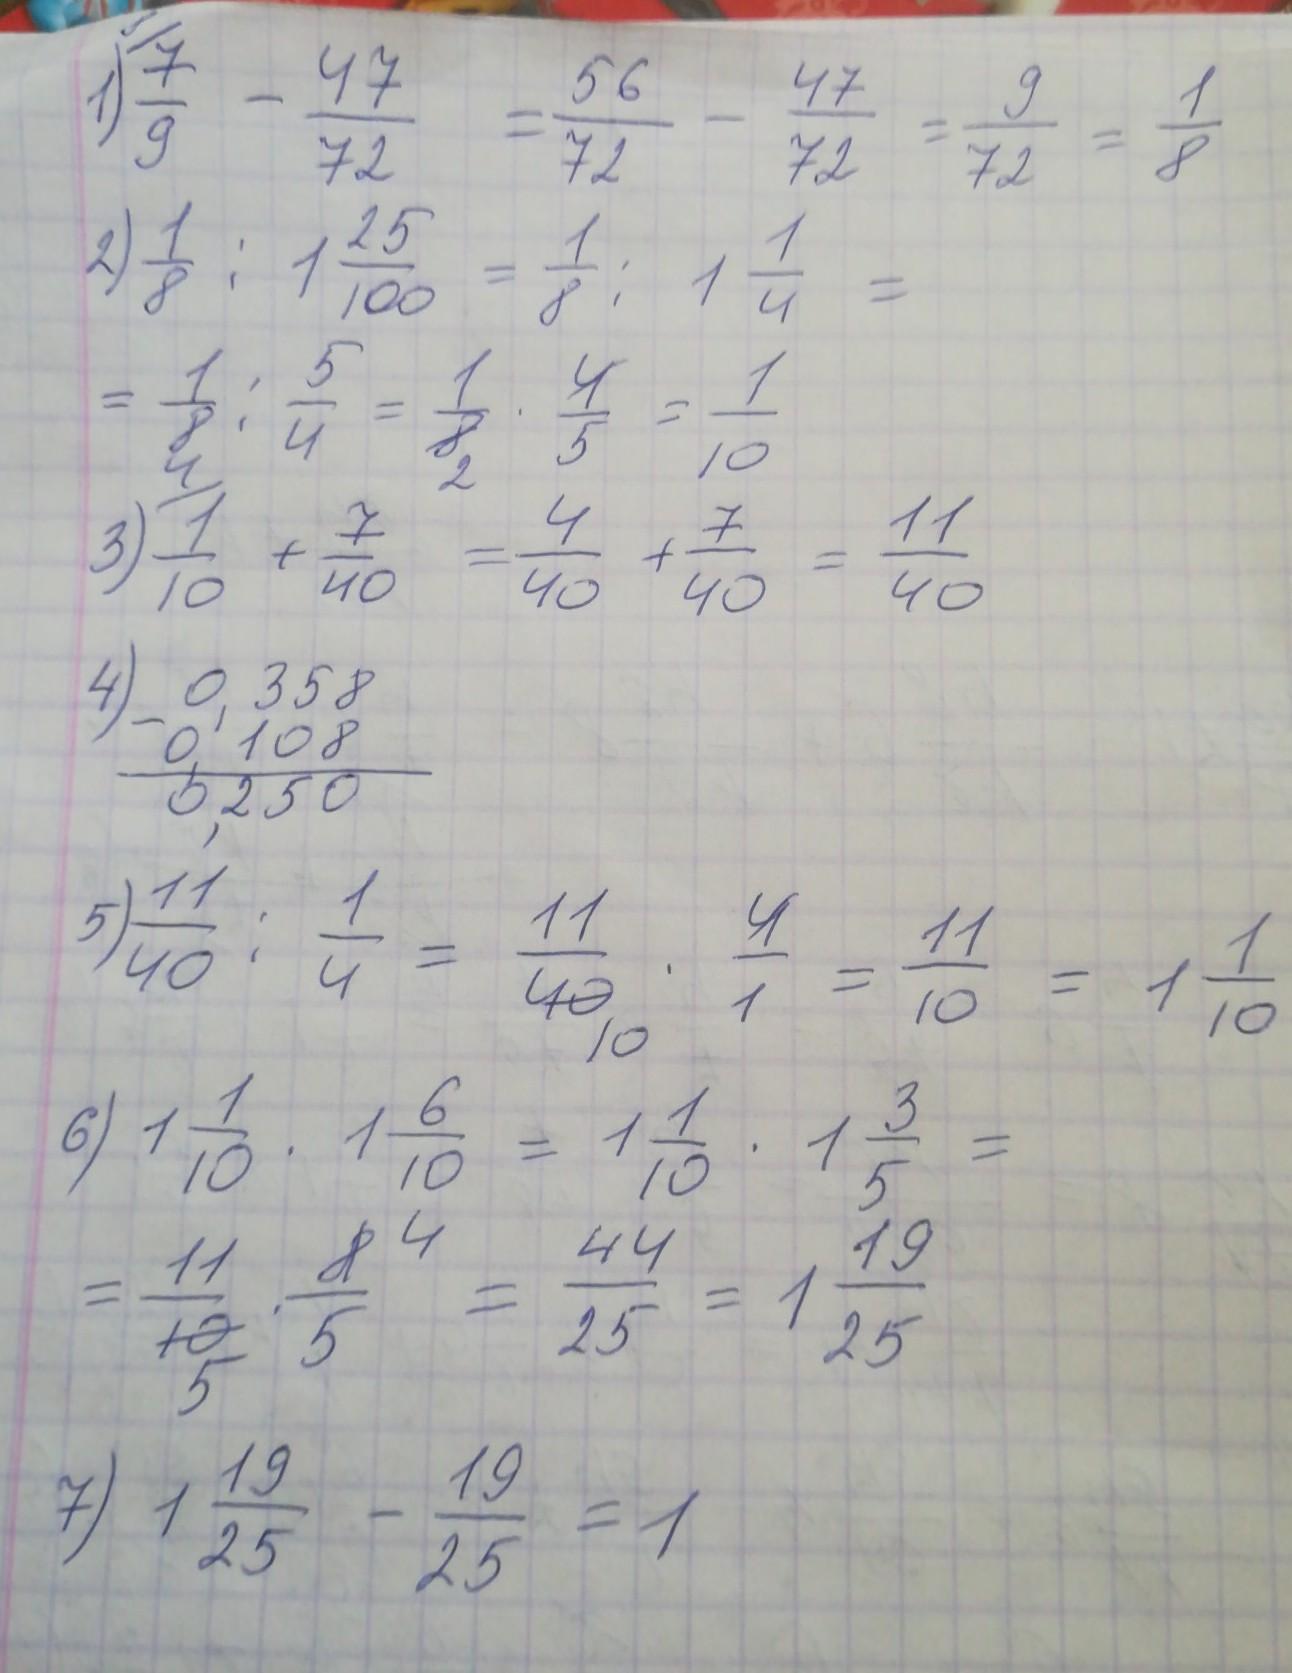 1) 7/9 - 47/72 = 56/72 - 47/72 = 9/72 = 1/8
2) 1/8 : 1 25/100 = 1/8 : 1 1/4 =
= 1/8 : 5/4 = 1/8 2 · 4/5 = 1/10
3) 4/ 1/10 + 7/40 = 4/40 + 7/40 = 11/40
4) - 0,358
0,108
0,250
5) 11/40 : 1/4 = 11/40 10 · 4/1 = 11/10 = 1 1/10
6) 1 1/10 · 1 6/10 = 1 1/10 · 1 3/5 =
= 11/10 5 · 8 4/5 = 44/25 = 1 19/25
7) 1 19/25 - 19/25 = 1